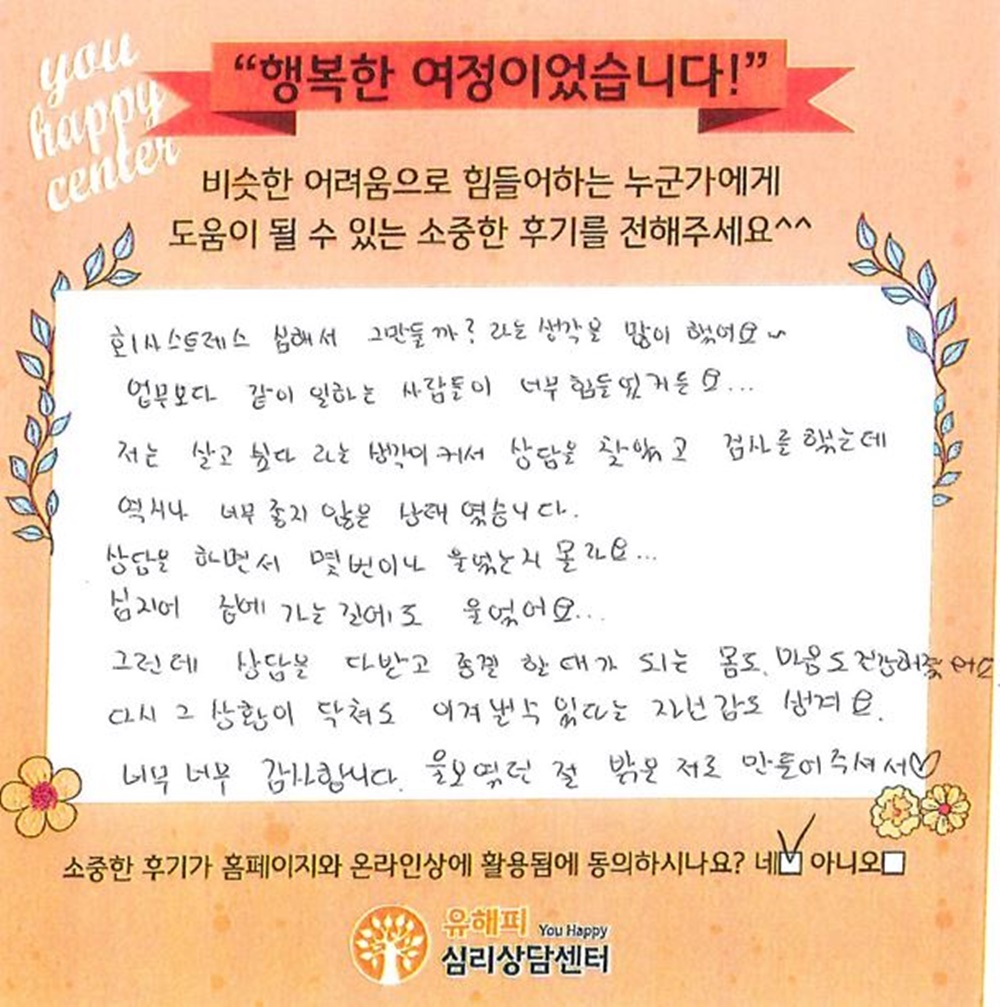 you
happy
center
“행복한 여정이었습니다!”
비슷한 어려움으로 힘들어하는 누군가에게
도움이 될 수 있는 소중한 후기를 전해주세요^^
회사스트레스 심해서 그만둘까? 라는 생각을 많이 했어요~
업무보다 같이 일하는 사람들이 너무 힘들었거든요...
저는 살고 싶다 라는 생각이 커서 상담을 찾았고 검사를 했는데
역시나 너무 좋지 않은 상태 였습니다.
상담을 하면서 몇번이나 울었는지 몰라요...
심지어 집에 가는 길에도 울었어요...
그런데 상담을 다받고 종결 할 대가 되는 몸도, 마음도 건강해졌어요
다시 그 상황이 닥쳐도 이겨낼수 있다는 자신감도 생겨요.
너무 너무 감사합니다. 울보였던 절 밝은 저로 만들어주셔서♡
소중한 후기가 홈페이지와 온라인상에 활용됨에 동의하시나요? 네☑ 아니오☐
유해피 You Happy
심리상담센터